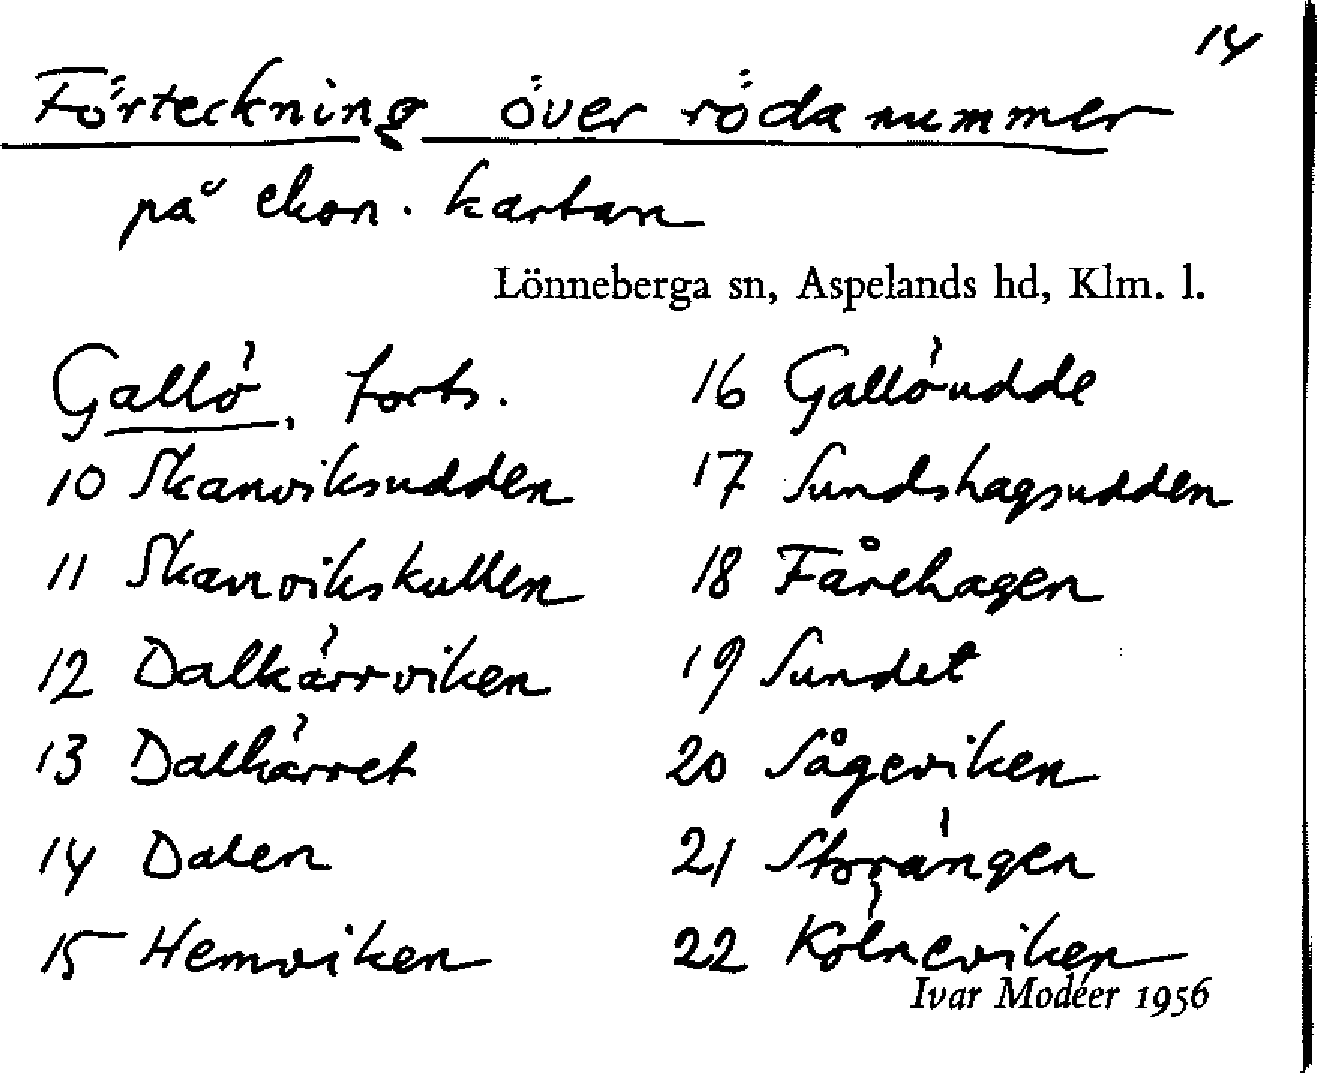 14
Förteckning över röda nummer
på ekon. kartan
Lönneberga sn, Aspelands hd, Klm. l.
Gallö, forts.
10 Skanviksudden
11 Skanvikskullen
12 Dalkärrviken
13 Dalkärret
14 Dalen
15 Hemviken
16 Gallöudde
17 Sundshagsudden
18 Fårehagen
19 Sundet
20 Sågeviken
21 Storängen
22 Kölneviken
Ivar Modéer 1956